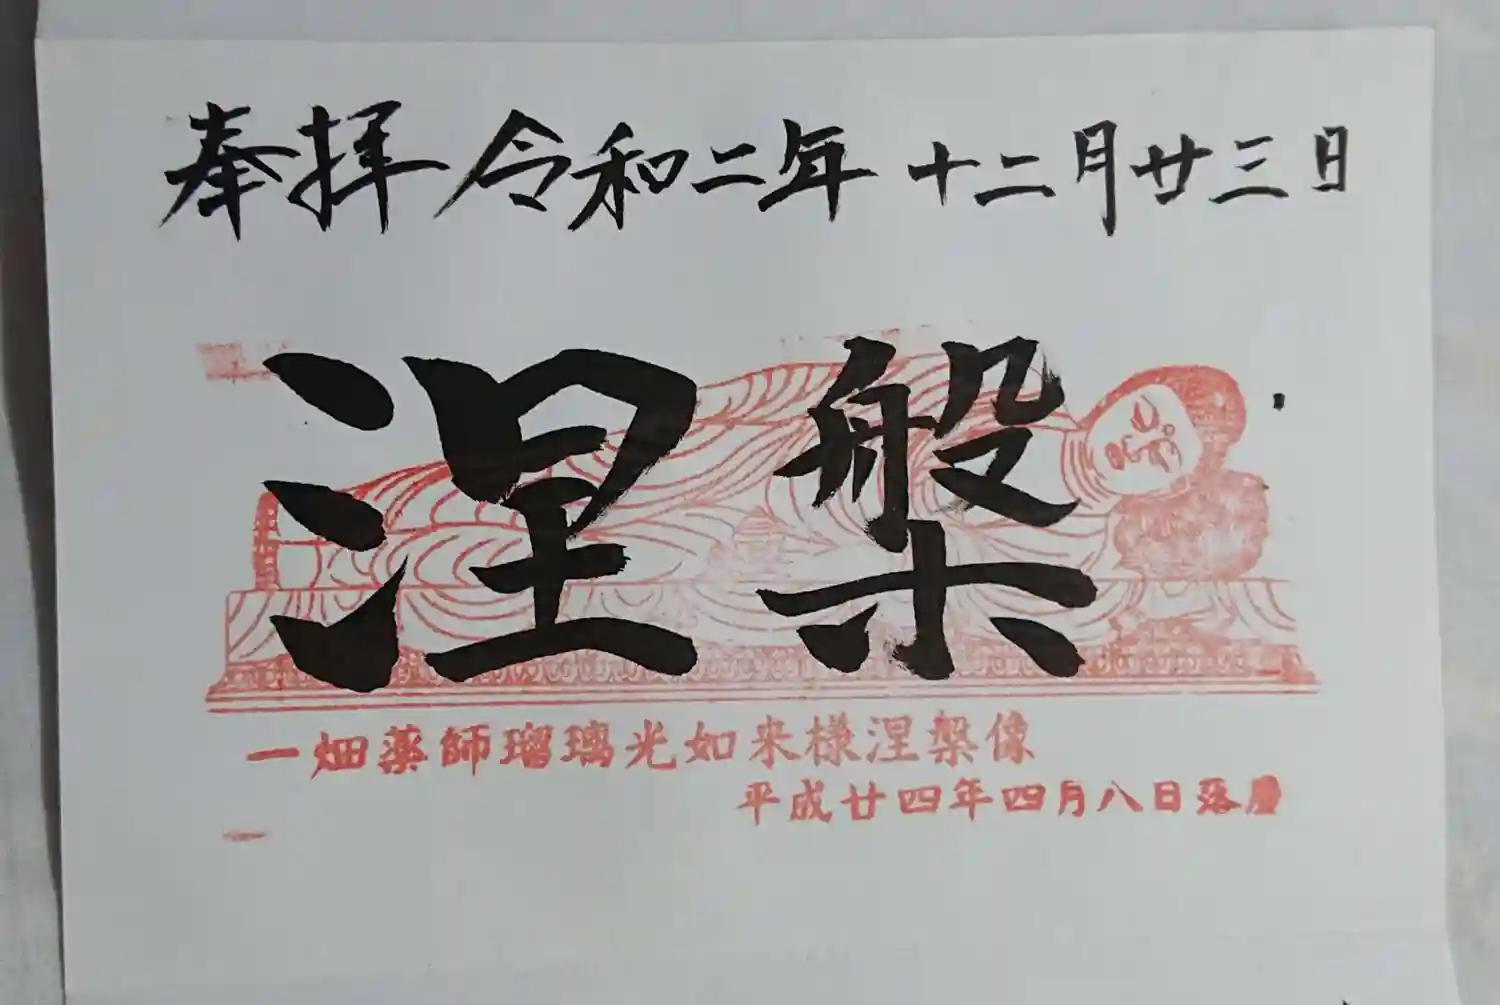 奉拝 令和二年 十二月廿三日
涅槃
一畑薬師瑠璃光如来様涅槃像
平成廿四年四月八日落慶